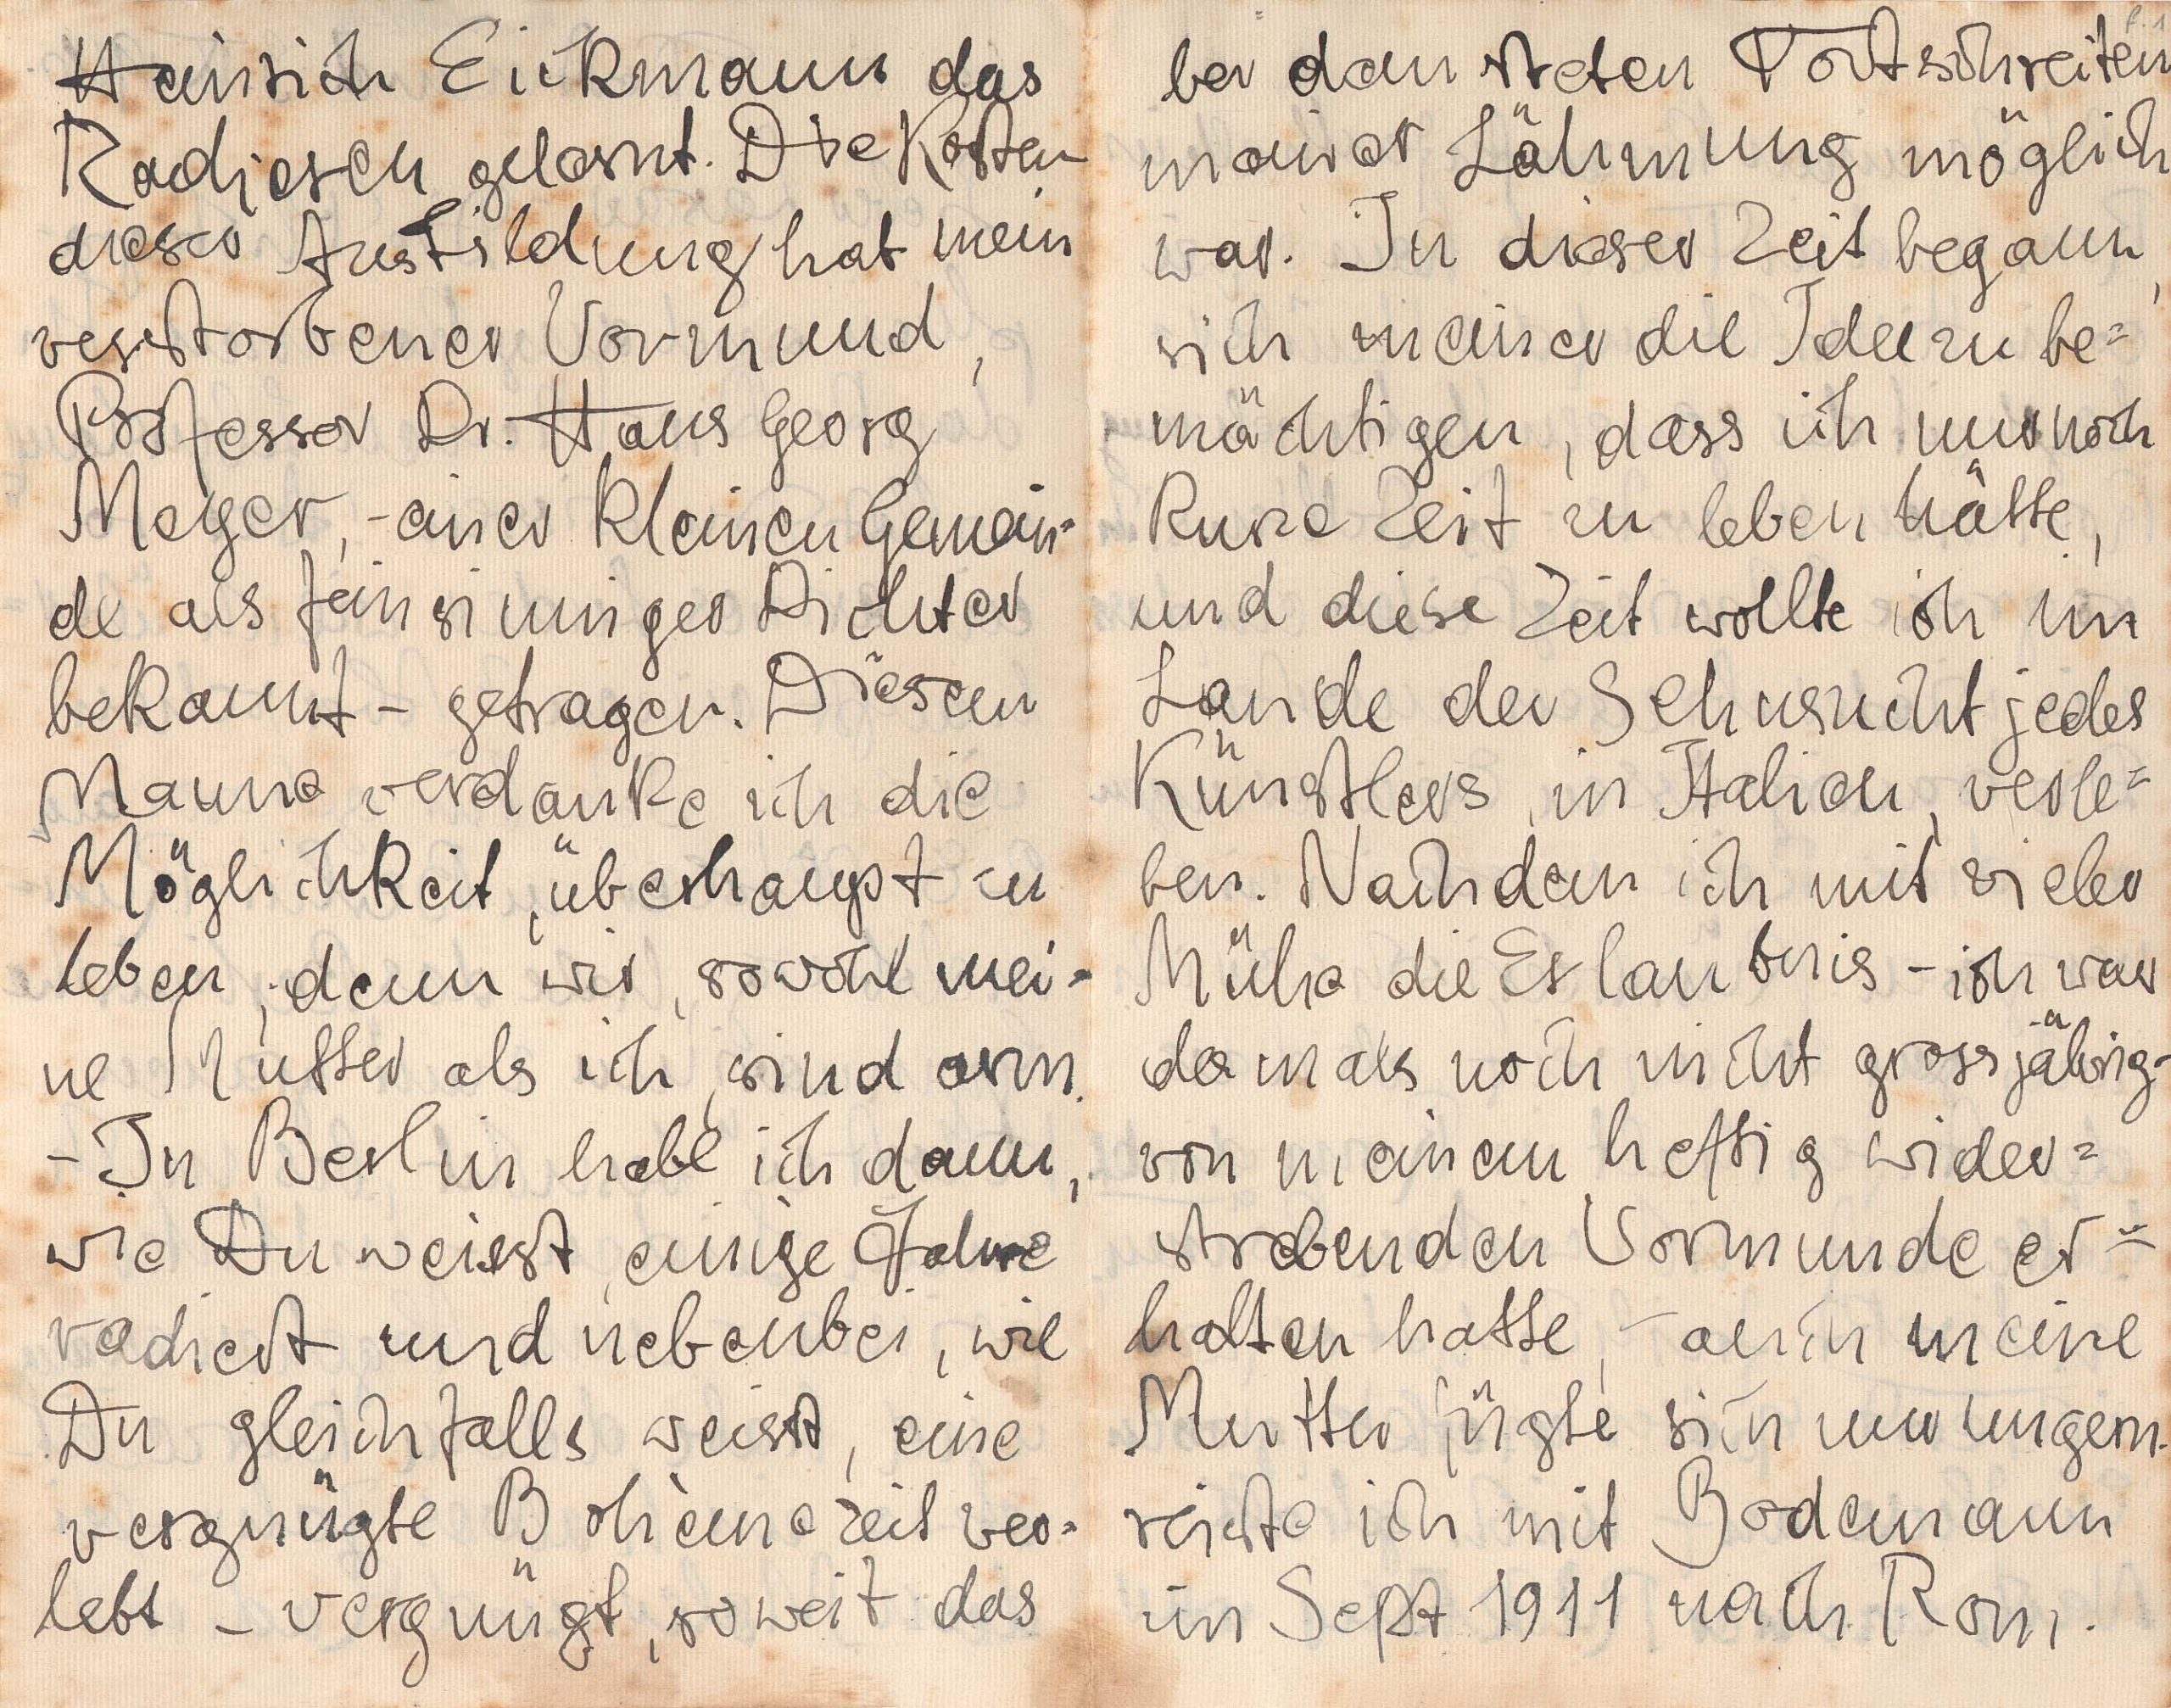 Heinrich Eickmann das
Radieren gelernt. Die Kosten
dieser Ausbildung hat mein
verstorbener Vormund,
Professor Dr. Hans Georg
Meyer, - einer kleinen Gemein-
de als feinsinniger Dichter
bekannt - getragen. Diesem
Manne verdanke ich die
Möglichkeit, überhaupt zu
leben, denn wir, sowohl mei-
ne Mutter als ich, sind arm.
- In Berlin habe ich dann,
wie Du weisst, einige Jahre
radiert und nebenbei, wie
Du gleichfalls weisst, eine
vergnügte Bohèmezeit ver-
lebt - vergnügt, soweit das
bei dem steten Fortschreiten
meiner Lähmung möglich
war. In dieser Zeit begann,
sich meiner die Idee zu be=
mächtigen, dass ich nur noch
kurze Zeit zu leben hätte,
und diese Zeit wollte ich im
Lande der Sehnsucht jedes
Künstlers, in Italien, verle=
ben. Nachdem ich mit vieler
Mühe die Erlaubnis - ich war
damals noch nicht grossjährig -
von meinem heftig wider=
strebenden Vormunde er=
halten hatte, - auch meine
Mutter fügte sich nur ungern -
reiste ich mit Bodemann
im Sept 1911 nach Rom.